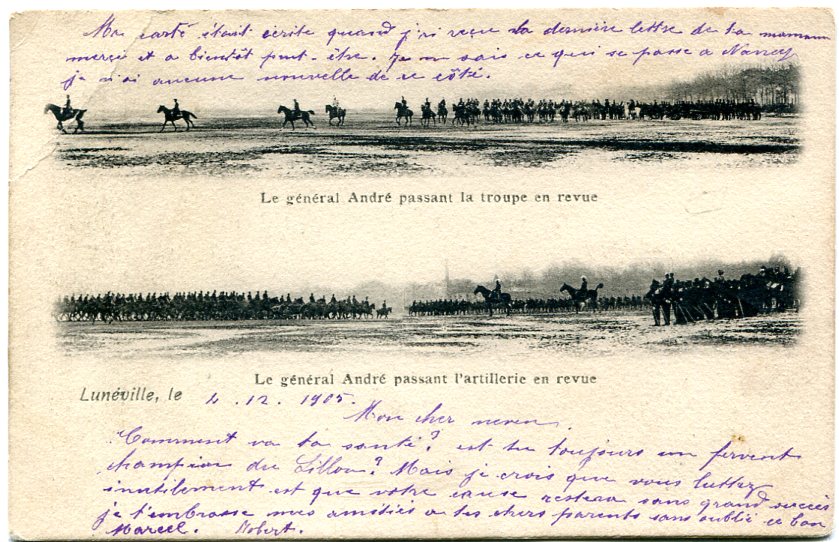 Ma carte était écrite quand j'ai reçu la dernière lettre de ta maman
merci et a bientôt peut-être. Je ne sais ce qui se passe a Nancy
je n'ai aucune nouvelle de ce côté.
Le général André passant la troupe en revue
Le général André passant l'artillerie en revue
Lunéville, le 4. 12. 1905.
Mon cher neveu
Comment va ta santé? est tu toujours un fervent
champion du Sillon? Mais je crois que vous luttez
inutilement et que votre cause restera sans grand succès
je t'embrasse mes amitiés a tes chers parents sans oublié ce bon
Marcel. Robert.